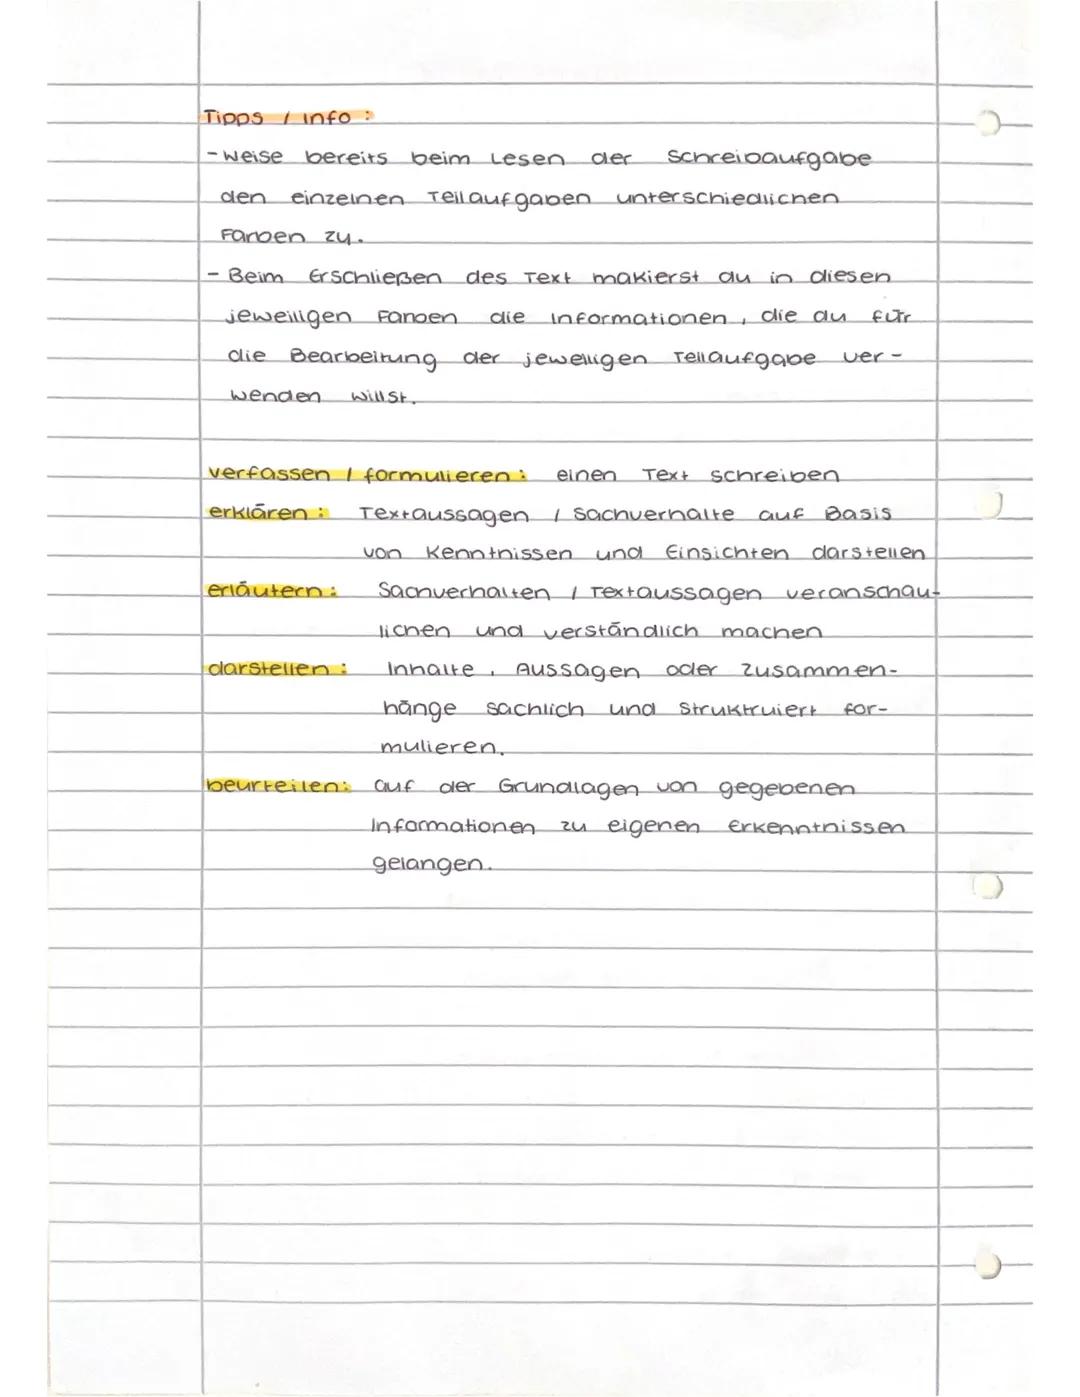 Tipps / Info :
- Weise bereits beim Lesen der Schreibaufgabe
den einzelnen Teilaufgaben unterschiedlichen
Farben zu.
- Beim Erschließen des Text makierst du in diesen
jeweiligen Farben die Informationen, die du für
die Bearbeitung der jeweiligen Teilaufgabe ver-
wenden willst.
verfassen / formulieren : einen Text schreiben
erklären : Textaussagen / Sachverhalte auf Basis
von Kenntnissen und Einsichten darstellen
erläutern : Sachverhalten / Textaussagen veranschau-
lichen und verständlich machen
darstellen : Inhalte, Aussagen oder Zusammen-
hänge sachlich und struktruiert for-
mulieren.
beurteilen: auf der Grundlagen von gegebenen
Informationen zu eigenen Erkenntnissen
gelangen.